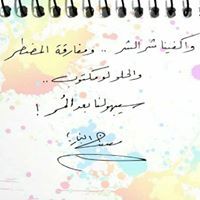 واكفينا شر الشر .. ومفارقة المضطر
والحلو لو مكتوب ..
سيبهولنا بعد المُر !